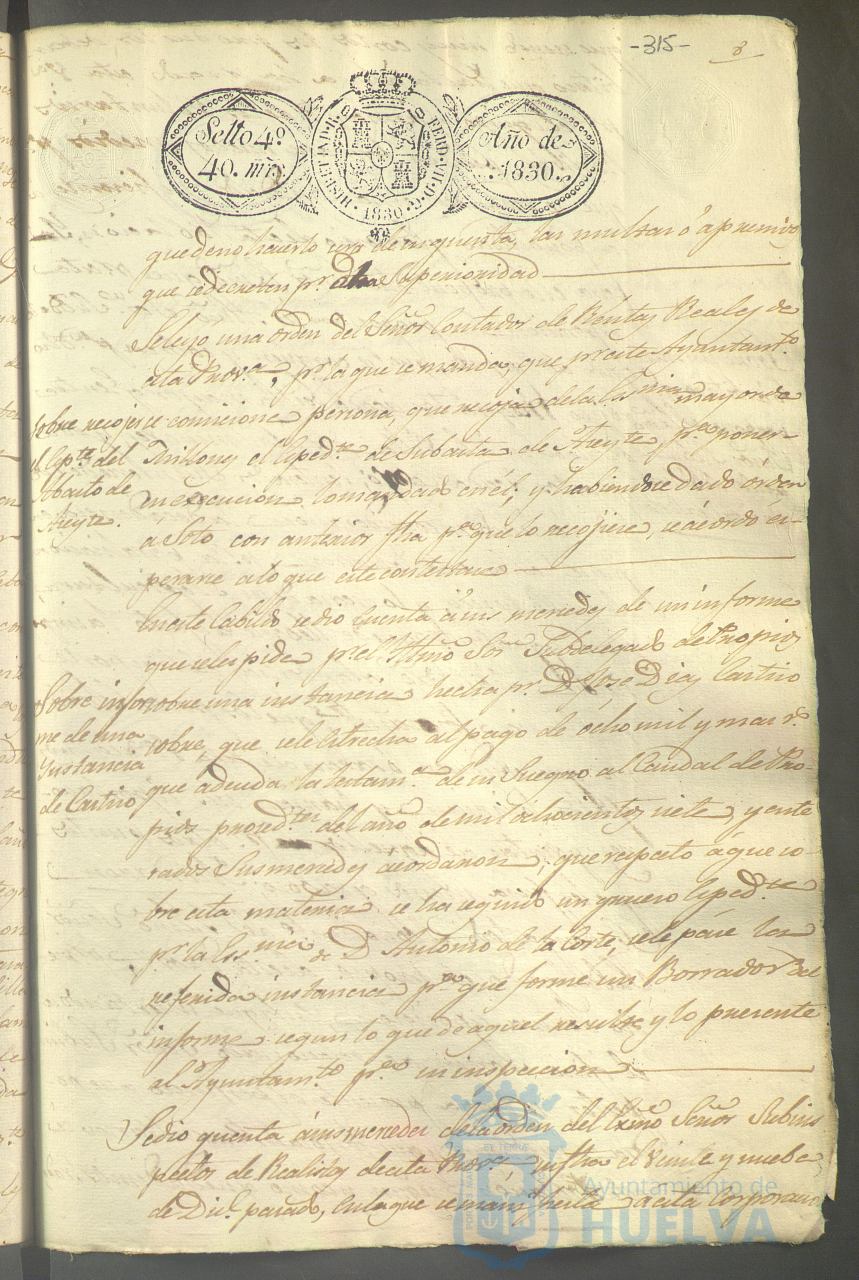 -315-
8
Sello 4º
40. mrs.
HISP. ET IND. R.
FERD. VII. D. G.
1830
Año de
1830.
que de no hacerlo será de su quenta, las multas ó apremios
que se decreten pr. dha Superioridad
Se leyó una órden del Señor Contador de Rentas Reales de
esta Prova., pr. la que se manda, que pr. este Ayuntamto.
se comicione persona, que recoja de la Esnia. mayor de
Millones el Espedte. de Subasta de Aceyte pa. poner
en execucion lo mandado en él; y habiendose dado órden
á Soto con anterior fha pa. que lo recojiese, se acordó es-
perarse a lo que este contestase
Sobre recojer
el Epte. del
Abasto de
Aceyte.
En este Cabildo se dio quenta á sus mercedes de un informe
que se les pide pr. el Ylmo. Sor. Subdelegado de Propios
sobre una instancia hecha pr. D. Jose Diaz Castro
sobre, que se le estrecha al pago de ócho mil y mas rs.
que ádeuda la testama. de su Suegro al Caudal de Pro-
pios procedtes. del año de mil ochocientos siete, y ente
rados Sus mercedes ácordaron, que respecto á que so-
bre esta materia se ha seguido un grueso Espedte.
pr. la Esnia. de D. Antonio de la Corte, se le pase la
referida instancia pa. que forme un Borrador del
informe segun lo que de aquel resulte, y lo presente
al Ayuntamto. pa. su inspeccion
Sobre infor
me de una
Ynstancia
de Castro
Se dio quenta á sus mercedes de la órden del Exmo. Señor Subins
pector de Realistas de esta Prova. su fha el Veinte y nueve
de Dice. pasado, en la que se manifiesta á esta Corporacion
Ayuntamiento de
HUELVA